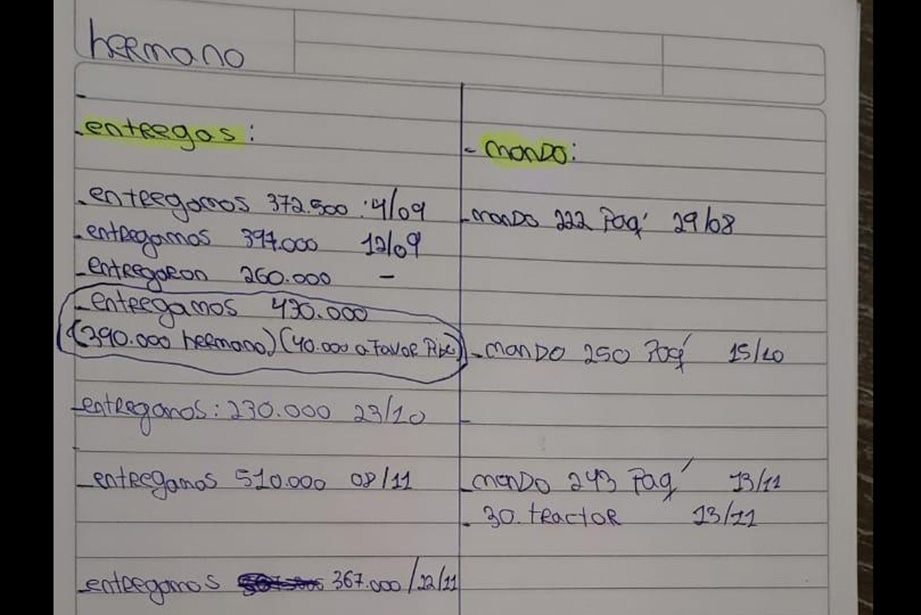 hermano
- entregas:
- entregamos 372.500 : 4/09
- entregamos 397.000 12/09
- entregaron 260.000 -
- entregamos 430.000
(390.000 hermano) (40.000 a favor
- entreganos: 230.000 23/10
- entregamos 510.000 08/11
- entregamos 367.000 / 22/11
- mando:
- mando 222 Paq' 29/08
- mando 250 Paq' 15/10
- mando 243 Paq' 13/11
- 30. tractor 13/11